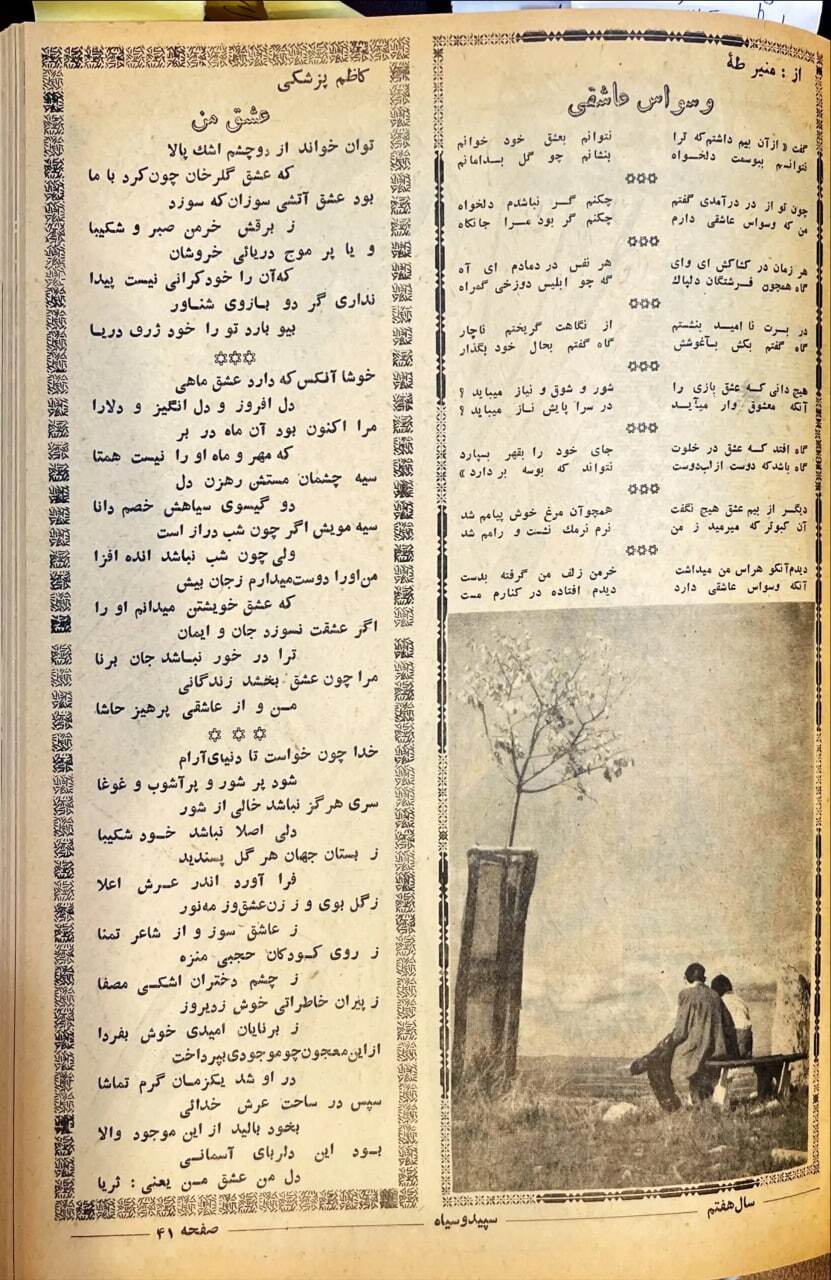 از : منیر طهٔ
وسواس عاشقی
گفت « از آن بیم داشتم که ترا نتوانم بعشق خود خوانم
نتوانم ببوسمت دلخواه بنشانم چو گل بدامانم
***
چون تو از در درآمدی گفتم چکنم گر نباشدم دلخواه
من که وسواس عاشقی دارم چکنم گر بود مرا جانکاه
***
هر زمان در کشاکش ای وای هر نفس در دمادم ای آه
گاه همچون فرشتگان دلپاك گه چو ابلیس دوزخی گمراه
***
در برت ناامید بنشستم از نگاهت گریختم ناچار
گاه گفتم بکش بآغوشش گاه گفتم بحال خود بگذار
***
هیچ دانی که عشق بازی را شور و شوق و نیاز میباید ؟
آنکه معشوق وار میآید در سراپایش ناز میباید ؟
***
گاه افتد که عشق در خلوت جای خود را بقهر بسپارد
گاه باشد که دوست از لب دوست نتواند که بوسه بردارد »
***
دیگر از بیم عشق هیچ نگفت همچو آن مرغ خوش پیامم شد
آن کبوتر که میرمید ز من نرم نرمك نشست و رامم شد
***
دیدم آنکو هراس من میداشت خرمن زلف من گرفته بدست
آنکه وسواس عاشقی دارد دیدم افتاده در کنارم مست
کاظم پزشکی
عشق من
توان خواند از دوچشم اشك پالا
که عشق گلرخان چون کرد با ما
بود عشق آتشی سوزان که سوزد
ز برقش خرمن صبر و شکیبا
و یا پر موج دریائی خروشان
که آن را خود کرانی نیست پیدا
نداری گر دو بازوی شناور
بیو بارد تو را خود ژرف دریا
***
خوشا آنکس که دارد عشق ماهی
دل افروز و دل انگیز و دلارا
مرا اکنون بود آن ماه در بر
که مهر و ماه او را نیست همتا
سیه چشمان مستش رهزن دل
دو گیسوی سیاهش خصم دانا
سیه مویش اگر چون شب دراز است
ولی چون شب نباشد انده افزا
من اورا دوست میدارم زجان بیش
که عشق خویشتن میدانم او را
اگر عشقت نسوزد جان و ایمان
ترا در خور نباشد جان برنا
مرا چون عشق بخشد زندگانی
من و از عاشقی پرهیز حاشا
* * *
خدا چون خواست تا دنیای آرام
شود پر شور و پرآشوب و غوغا
سری هرگز نباشد خالی از شور
دلی اصلا نباشد خود شکیبا
ز بستان جهان هر گل پسندید
فرا آورد اندر عرش اعلا
زگل بوی و ز زن عشق وز مه نور
ز عاشق سوز و از شاعر تمنا
ز روی کودکان حجبی منزه
ز چشم دختران اشکی مصفا
ز پیران خاطراتی خوش زدیروز
ز برنایان امیدی خوش بفردا
از این معجون چو موجودی بپرداخت
در او شد یکزمان گرم تماشا
سپس در ساحت عرش خدائی
بخود بالید از این موجود والا
بود این دلربای آسمانی
دل من عشق من یعنی : ثریا
سال هفتم
سپید و سیاه
صفحه ۴۱